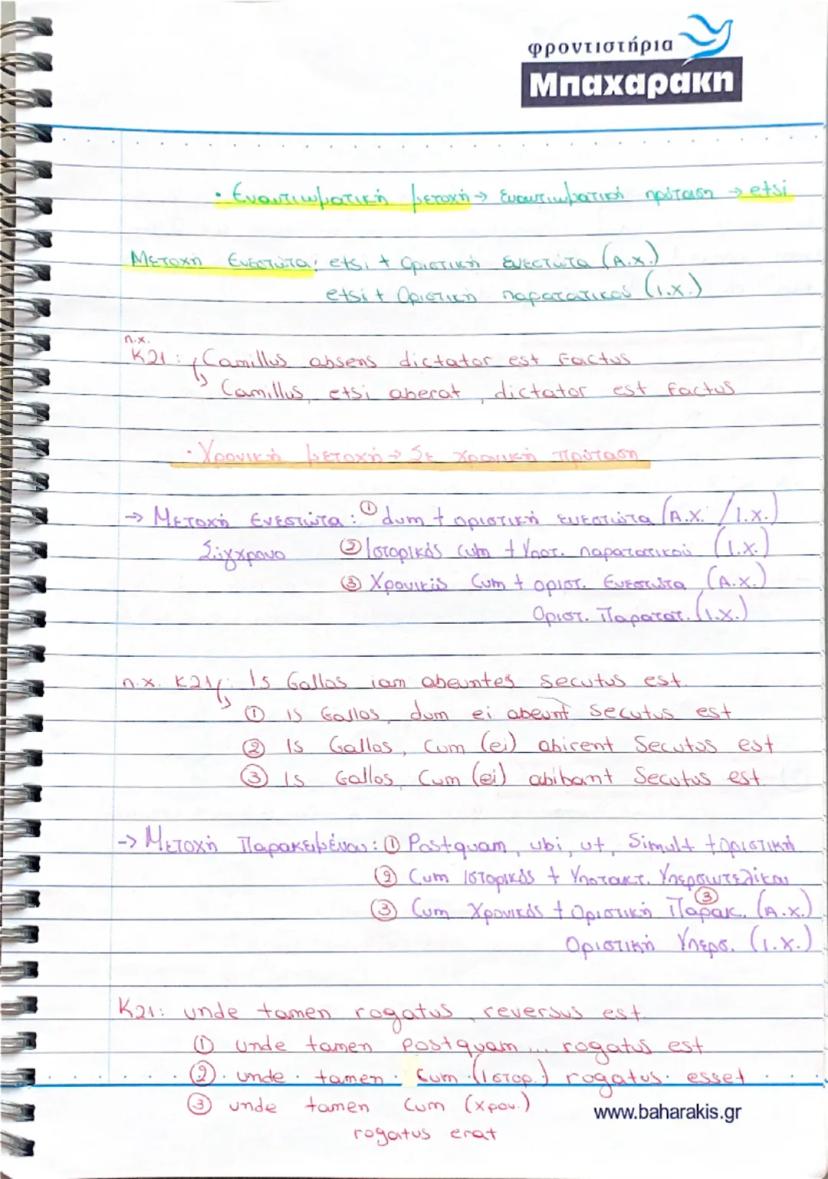 φροντιστήρια
Μπαχαράκη
• Εναντιωματική μετοχή → εναντιωματική πρόταση → etsi
Μετοχη Ενεστώτα: etsi + Οριστική ενεστώτα (Α.Χ.)
etsi + Οριστική παρατατικού (Ι.Χ.)
π.χ.
Κ21: Camillus absens dictator est factus
Camillus, etsi aberat, dictator est factus
• Χρονική μετοχή → Σε χρονική πρόταση
→ Μετοχή Ενεστώτα: ① dum + οριστική ενεστώτα (Α.Χ. / Ι.Χ.)
Σύγχρονο ② Ιστορικός cum + Υποτ. παρατατικού (Ι.Χ.)
③ Χρονικός Cum + οριστ. Ενεστώτα (Α.Χ.)
Οριστ. Παρατατ. (Ι.Χ.)
π.χ. Κ21: Is Gallos iam abeuntes secutus est.
① is Gallos, dum ei abeunt secutus est
② Is Gallos, cum (ei) abirent secutus est
③ Is Gallos, cum (ei) abibant secutus est
→ Μετοχή Παρακειμένου: ① Postquam, ubi, ut, simult + οριστική
② Cum Ιστορικός + Υποτακτ. Υπερσυντελίκου
③ Cum Χρονικός + Οριστική Παρακ. ③ (Α.Χ.)
Οριστική Υπερσ. (Ι.Χ.)
Κ21: unde tamen rogatus, reversus est.
① unde tamen postquam... rogatus est
② unde tamen cum (ιστορ.) rogatus esset
③ unde tamen cum (χρον.)
www.baharakis.gr
rogatus erat